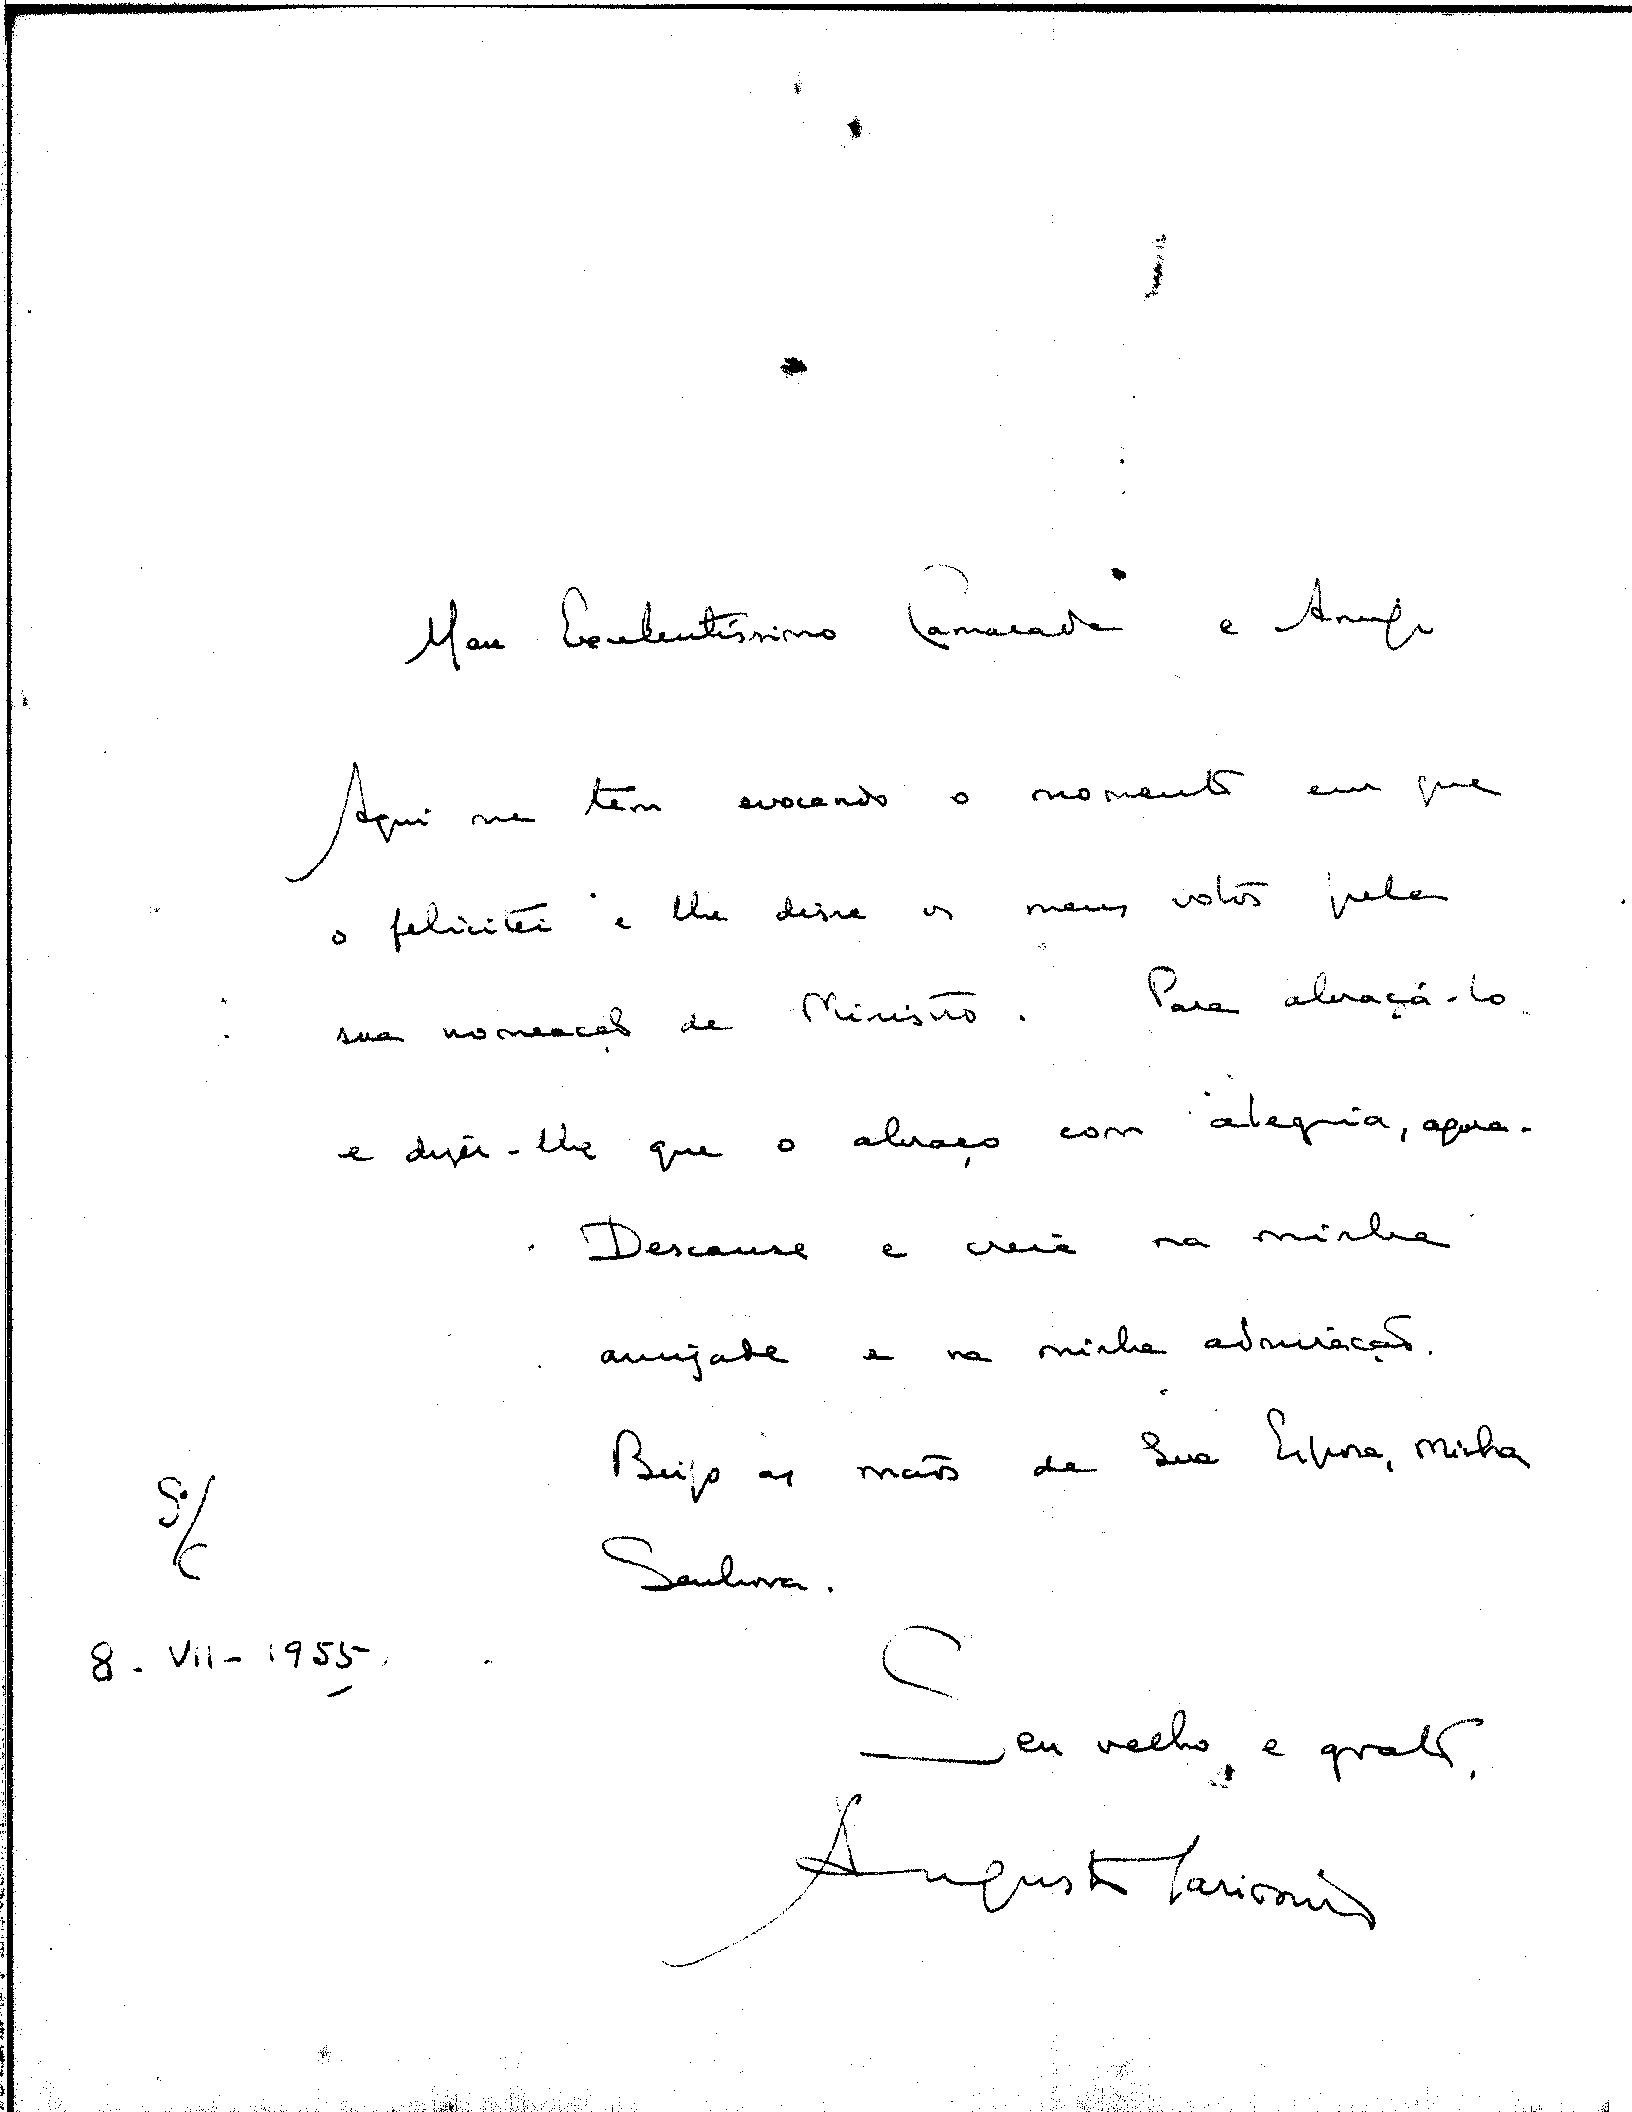 Meu Excelentíssimo Camarada e Amigo
Aqui me tem evocando o momento em que
o felicitei e lhe disse os meus votos pela
sua nomeação de Ministro. Para abraçá-lo
e dizer-lhe que o abraço com alegria, agora.
Descanse e creia na minha
amizade e na minha admiração.
Beijo as mãos de Sua Esposa, Minha
Senhora.
S/C
8-VII-1955.
Seu velho e grato,
Augusto